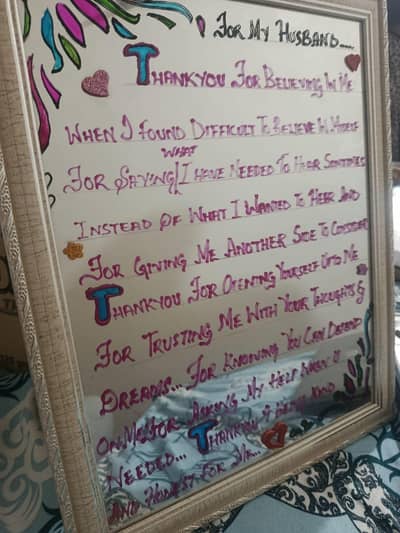 For My Husband....
Thankyou For Believing In Me
When I Found Difficult To Believe In Myself
For Saying what I Have Needed To Hear Somtimes
Instead Of What I Wanted To Hear And
For Giving Me Another Side To Consider
Thankyou For Opening Yourself Upto Me
For Trusting Me With Your Thoughts &
Dreams... For Knowing You Can Depend
On Me, For Asking My Help When U
Needed... Thankyou 4 Being Kind
And Honest For Me..